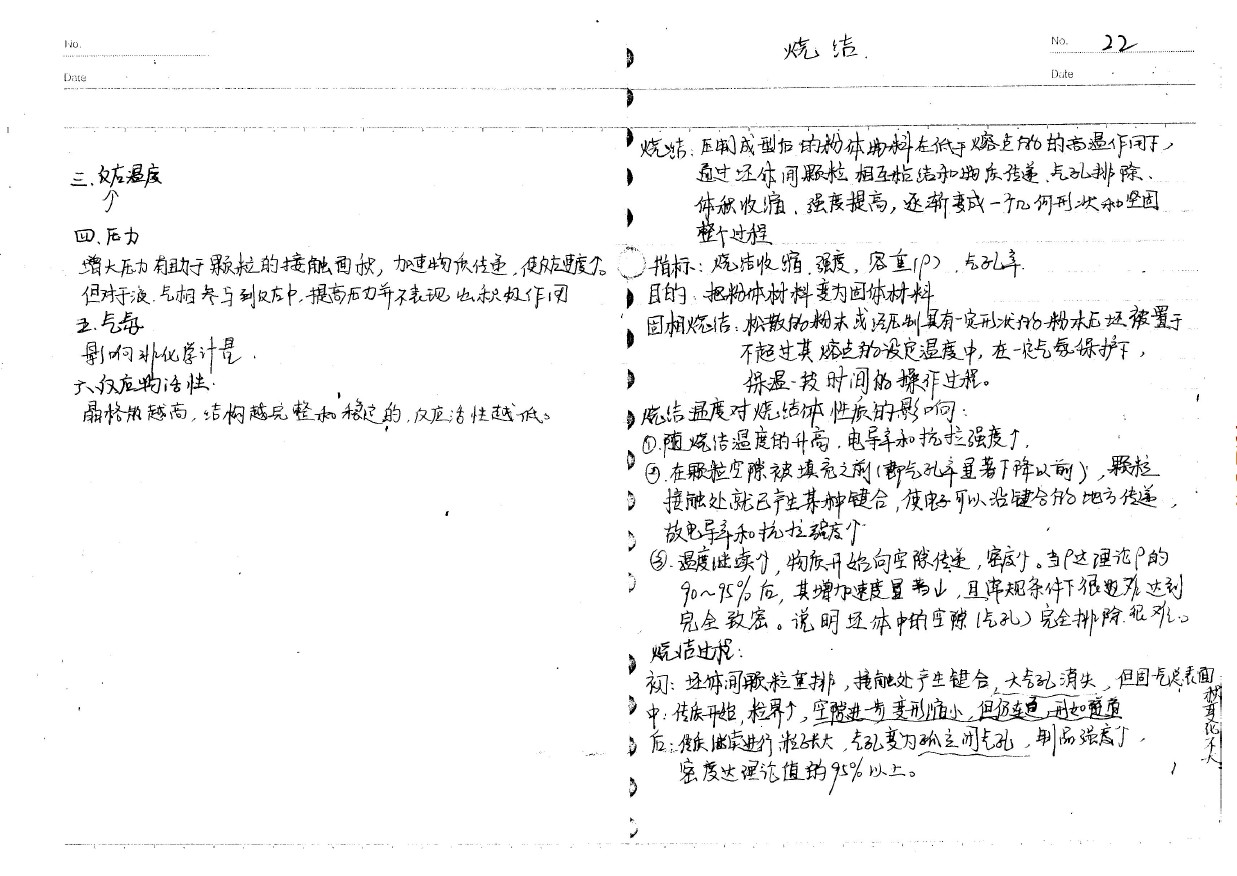 No.
Date
三、反应温度
↑
四、压力
增大压力有助于颗粒的接触面积，加速物质传递，使反应速度↑。
但对于液、气相参与到反应中，提高压力并不表现出积极作用
五、气氛
影响非化学计量.
六、反应物活性.
晶格能越高，结构越完整和稳定的，反应活性越低。
烧结.
No. 22
Date
烧结：压制成型后的粉体物料在低于熔点的的高温作用下，
通过坯体间颗粒相互粘结和物质传递、气孔排除、
体积收缩、强度提高，逐渐变成一个几何形状和坚固
整个过程
指标：烧结收缩、强度，容重(ρ)，气孔率.
目的：把粉体材料变为固体材料
固相烧结：松散的粉末或经压制具有一定形状的粉末压坯被置于
不超过其熔点的设定温度中，在一定气氛保护下，
保温一段时间的操作过程。
烧结温度对烧结体性质的影响：
①.随烧结温度的升高，电导率和抗拉强度↑.
②.在颗粒空隙被填充之前(即气孔率显著下降以前)，颗粒
接触处就已产生某种键合，使电子可以沿键合的地方传递，
故电导率和抗拉强度↑
③.温度继续↑，物质开始向空隙传递，密度↑。当ρ达理论ρ的
90~95%后，其增加速度显著小，且常规条件下很难达到
完全致密。说明坯体中的空隙(气孔)完全排除很难。
烧结过程：
初：坯体间颗粒重排，接触处产生键合，大气孔消失，但固气总表面
积变化不大
中：传质开始，粒界↑，空隙进一步变形缩小，但仍连通，形如隧道
后：传质继续进行粒子长大，气孔变为孤立闭气孔，制品强度↑，
密度达理论值的95%以上。